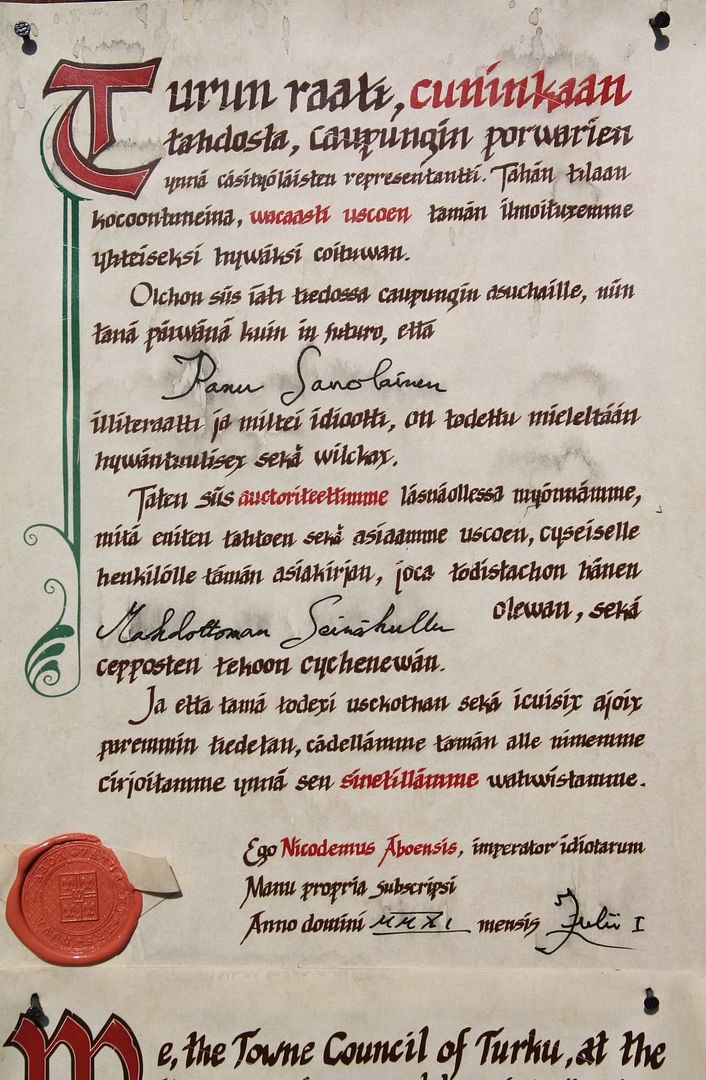 Turun raati, cuninkaan
tahdosta, caupungin porwarien
ynnä cäsityöläisten representantti. Tähän tilaan
kocoontuneina, wacaasti uscoen tämän ilmoituxemme
yhteiseksi hywäksi coituwan.
Olchon siis iäti tiedossa caupungin asuchaille, niin
tänä päiwänä kuin in futuro, että
Panu Savolainen
illiteraatti ja miltei idiootti, on todettu mieleltään
hywäntuulisex sekä wilckax.
Täten siis auctoriteettimme läsnäollessa myönnämme,
mitä eniten tahtoen sekä asiaamme uscoen, cyseiselle
henkilölle tämän asiakirjan, joca todistachon hänen
Mahdottoman Seinähullu olewan, sekä
cepposten tekoon cychenewän.
Ja että tämä todexi usckothan sekä icuisix ajoix
paremmin tiedetän, cädellämme tämän alle nimemme
cirjoitamme ynnä sen sinetillämme wahwistamme.
Ego Nicodemus Aboensis, imperator idiotarum
Manu propria subscripsi
Anno domini MMXI mensis Julii I
We, the Towne Council of Turku, at the